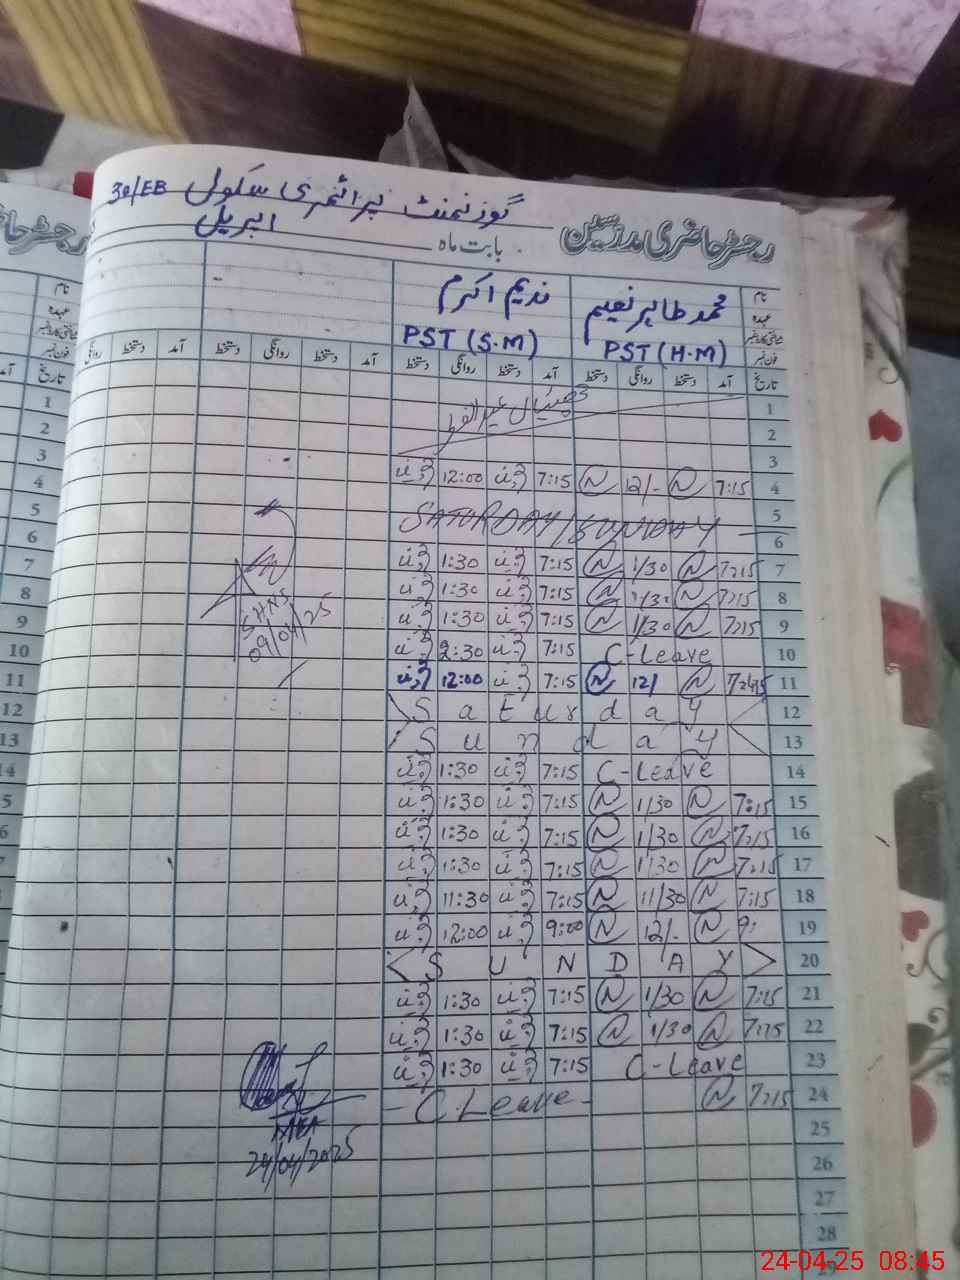 گورنمنٹ پرائمری سکول 30/EB
رجسٹر حاضری مدرسین بابت ماہ اپریل
نام محمد طاہر نعیم ندیم اکرم
عہدہ PST (H.M) PST (S.M)
فون نمبر
تاریخ آمد دستخط روانگی دستخط آمد دستخط روانگی دستخط آمد دستخط روانگی دستخط آمد دستخط روانگی
1
2
3
12:00 7:15 12/- 7:15 4
SATURDAY/SUNDAY 5
6
1:30 7:15 1/30 7:15 7
1:30 7:15 1/30 7:15 8
1:30 7:15 1/30 7:15 9
2:30 7:15 C-Leave 10
12:00 7:15 12/ 11
Saturday 12
Sunday 13
1:30 7:15 C-Leave 14
1:30 7:15 1/30 7:15 15
1:30 7:15 1/30 7:15 16
1:30 7:15 1/30 7:15 17
11:30 7:15 11/30 7:15 18
12:00 9:00 12/- 9: 19
SUNDAY 20
1:30 7:15 1/30 7:15 21
1:30 7:15 1/30 7:15 22
1:30 7:15 C-Leave 23
- C.Leave - 7:15 24
25
26
27
28
09/04/25
MEA
24/04/2025
24-04-25 08:45